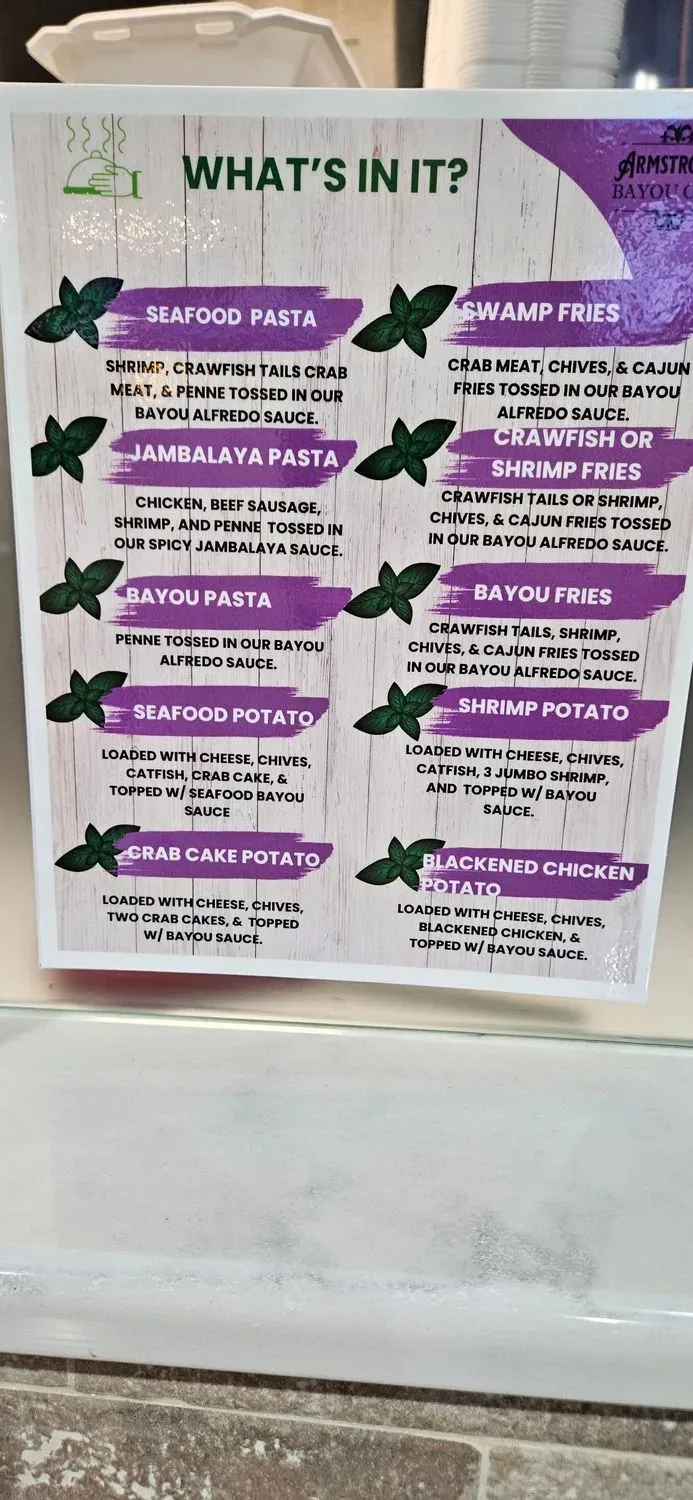 WHAT'S IN IT?
BAYOU
SEAFOOD PASTA
SHRIMP, CRAWFISH TAILS CRAB
MEAT, & PENNE TOSSED IN OUR
BAYOU ALFREDO SAUCE.
JAMBALAYA PASTA
CHICKEN, BEEF SAUSAGE,
SHRIMP, AND PENNE TOSSED IN
OUR SPICY JAMBALAYA SAUCE.
BAYOU PASTA
PENNE TOSSED IN OUR BAYOU
ALFREDO SAUCE.
SEAFOOD POTATO
LOADED WITH CHEESE, CHIVES,
CATFISH, CRAB CAKE, &
TOPPED W/ SEAFOOD BAYOU
SAUCE
CRAB CAKE POTATO
LOADED WITH CHEESE, CHIVES,
TWO CRAB CAKES, & TOPPED
W/ BAYOU SAUCE.
SWAMP FRIES
CRAB MEAT, CHIVES, & CAJUN
FRIES TOSSED IN OUR BAYOU
ALFREDO SAUCE.
CRAWFISH OR
SHRIMP FRIES
CRAWFISH TAILS OR SHRIMP,
CHIVES, & CAJUN FRIES TOSSED
IN OUR BAYOU ALFREDO SAUCE.
BAYOU FRIES
CRAWFISH TAILS, SHRIMP,
CHIVES, & CAJUN FRIES TOSSED
IN OUR BAYOU ALFREDO SAUCE.
SHRIMP POTATO
LOADED WITH CHEESE, CHIVES,
CATFISH, 3 JUMBO SHRIMP,
AND TOPPED W/ BAYOU
SAUCE.
BLACKENED CHICKEN
POTATO
LOADED WITH CHEESE, CHIVES,
BLACKENED CHICKEN, &
TOPPED W/ BAYOU SAUCE.